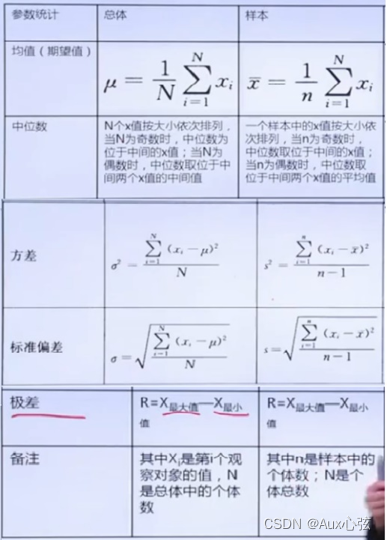 参数统计 总体 样本
均值（期望值） μ = 1/N ∑_{i=1}^{N} x_i x̄ = 1/n ∑_{i=1}^{N} x_i
中位数 N个x值按大小依次排列， 一个样本中的x值按大小依
当N为奇数时，中位数为 次排列，当n为奇数时，中
位于中间的x值；当N为 位数取位于中间的x值；
偶数时，中位数取位于中 当n为偶数时，中位数取
间两个x值的中间值 位于中间两个x值的平均值
方差 σ² = ∑_{i=1}^{N} (x_i − μ)² / N s² = ∑_{i=1}^{n} (x_i − x̄)² / n − 1
标准偏差 σ = √(∑_{i=1}^{N} (x_i − μ)² / N) s = √(∑_{i=1}^{n} (x_i − x̄)² / n − 1)
极差 R=X最大值—X最小 R=X最大值—X最小
值 值
备注 其中Xi是第i个观 其中n是样本中的
察对象的值，N 个体数；N是个
是总体中的个体 体总数
数
CSDN @Aux心弦